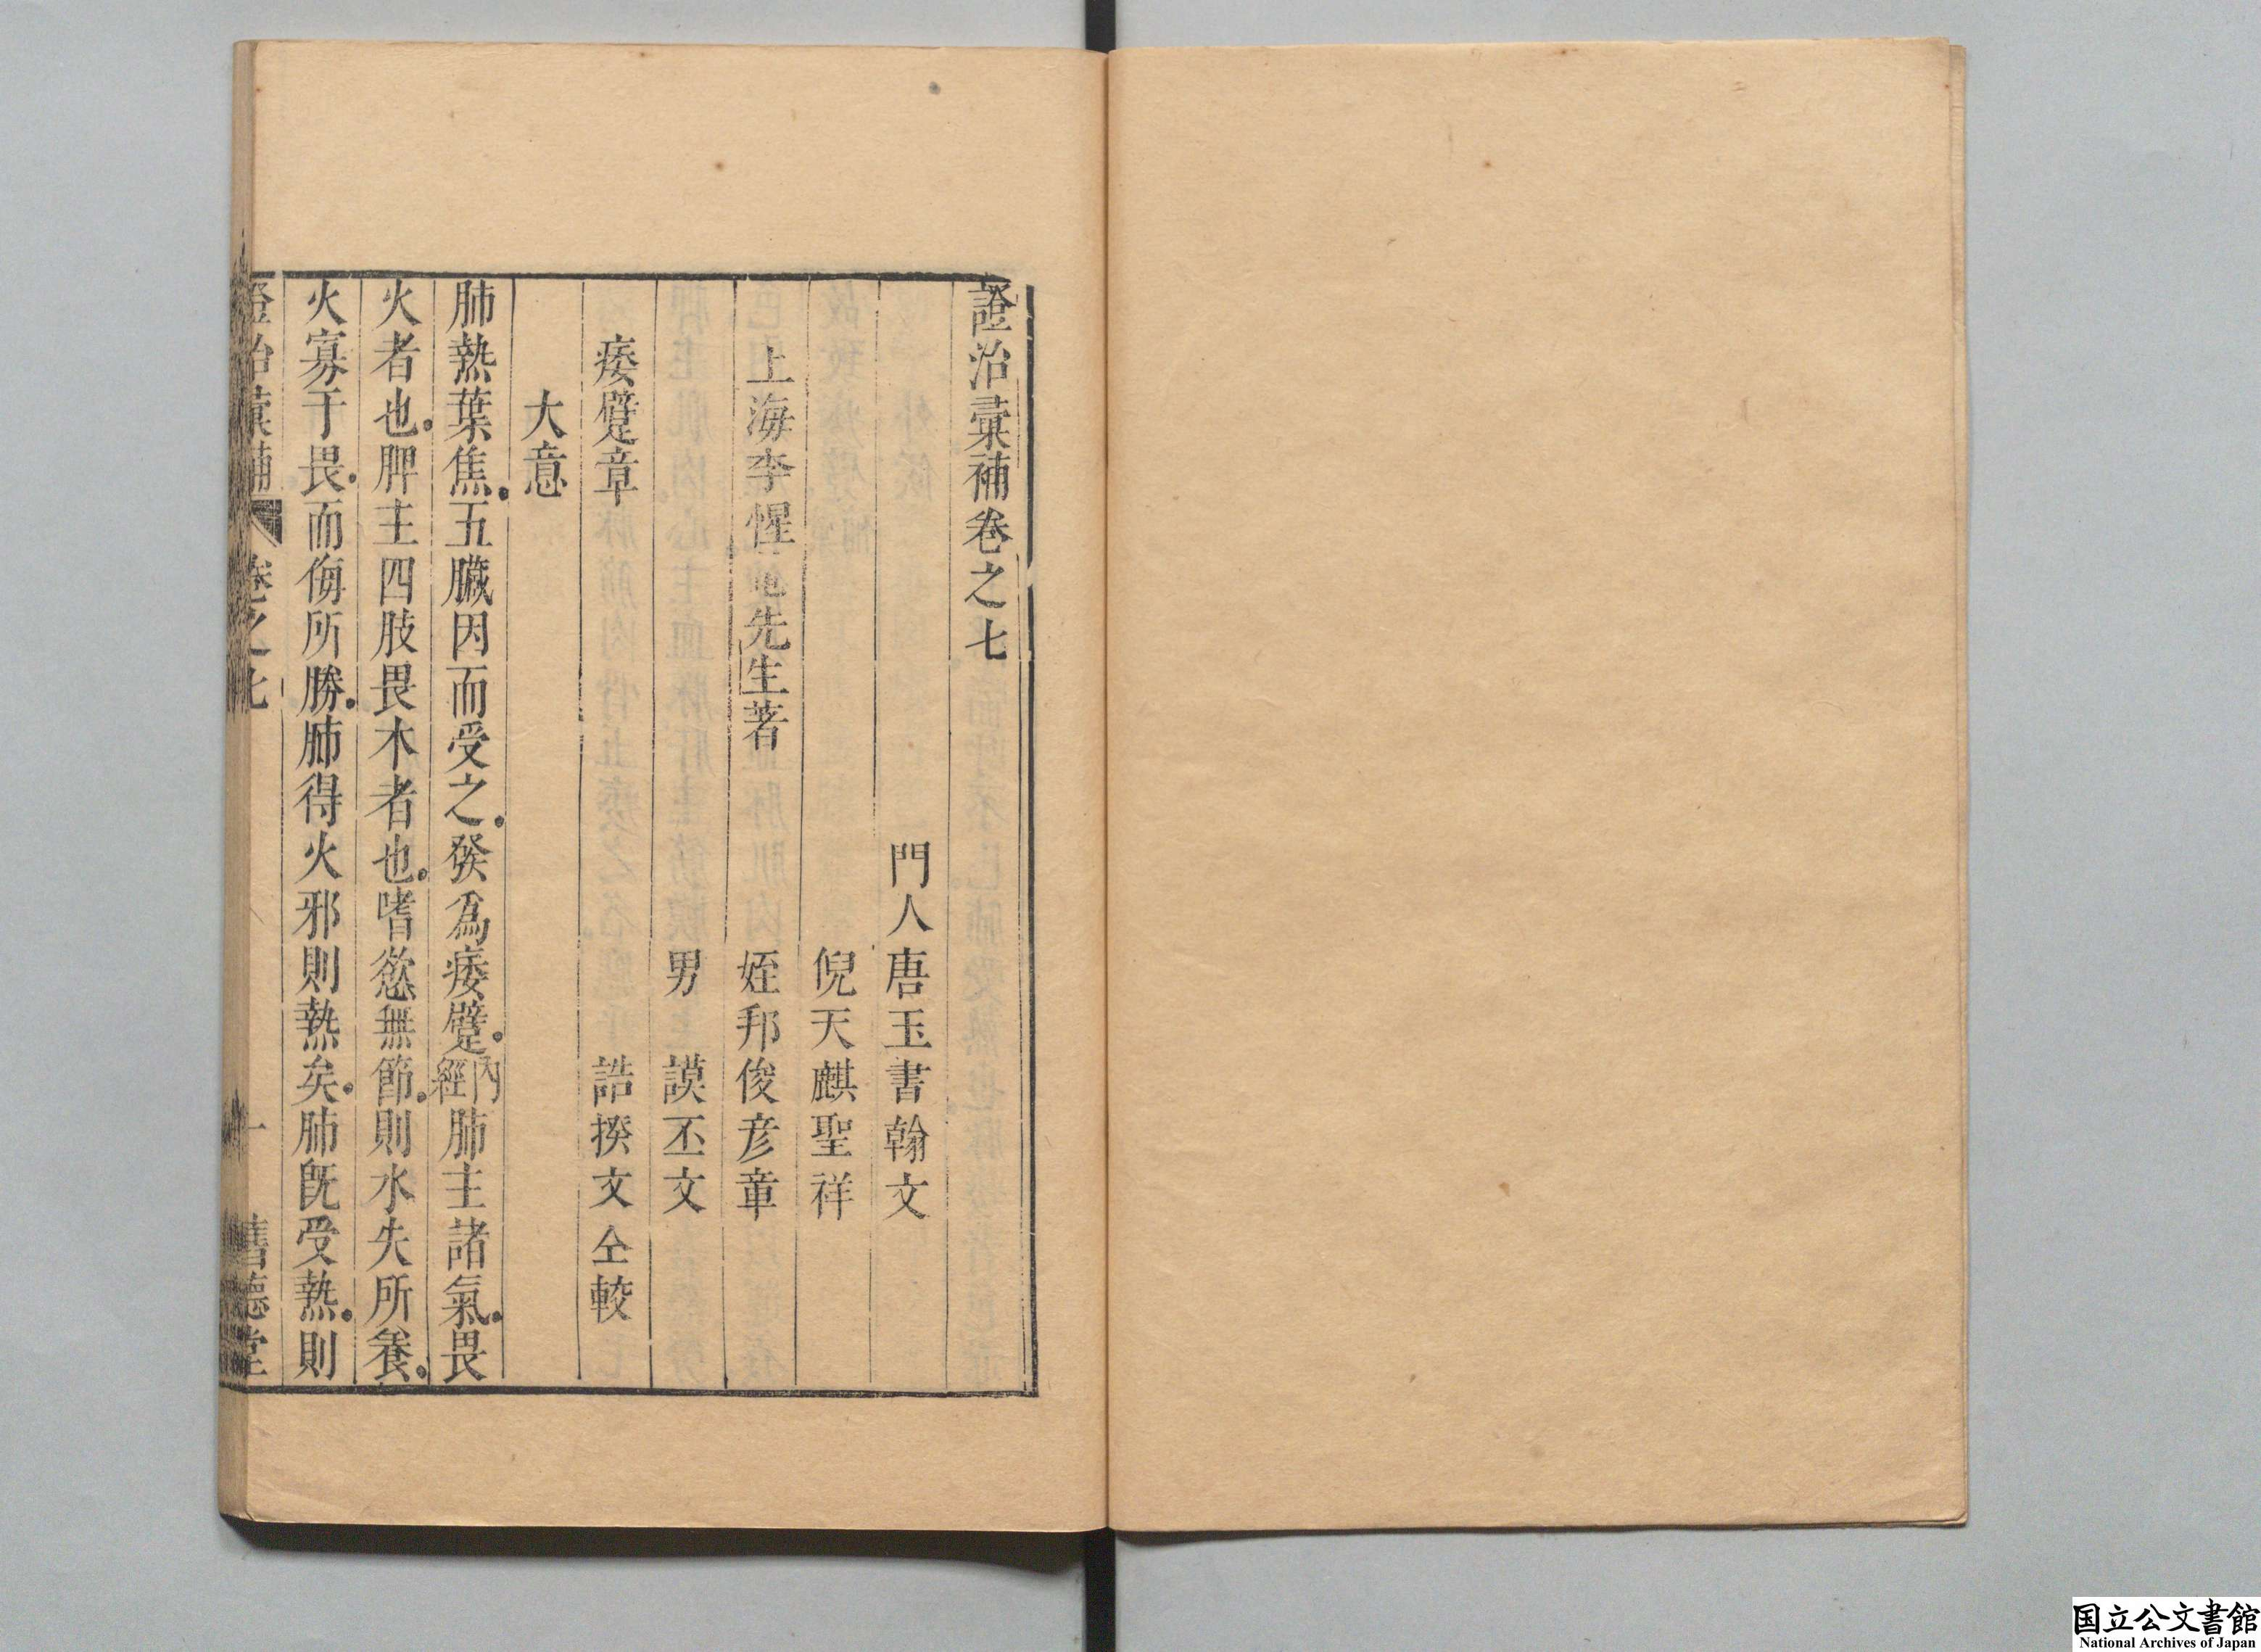 證治彙補卷之七
門人唐玉書翰文
倪天麒聖祥
上海李惺菴先生著 姪邦俊彦章
男 謨丕文
痿躄章 誥揆文仝較
大意
肺熱葉焦。五臟因而受之。發爲痿躄。內經肺主諸氣。畏
火者也。脾主四肢畏木者也。嗜慾無節。則水失所養。
火寡于畏。而侮所勝。肺得火邪則熱矣。肺旣受熱。則
證治彙補 卷之七 一 舊德堂
国立公文書館
National Archives of Japan